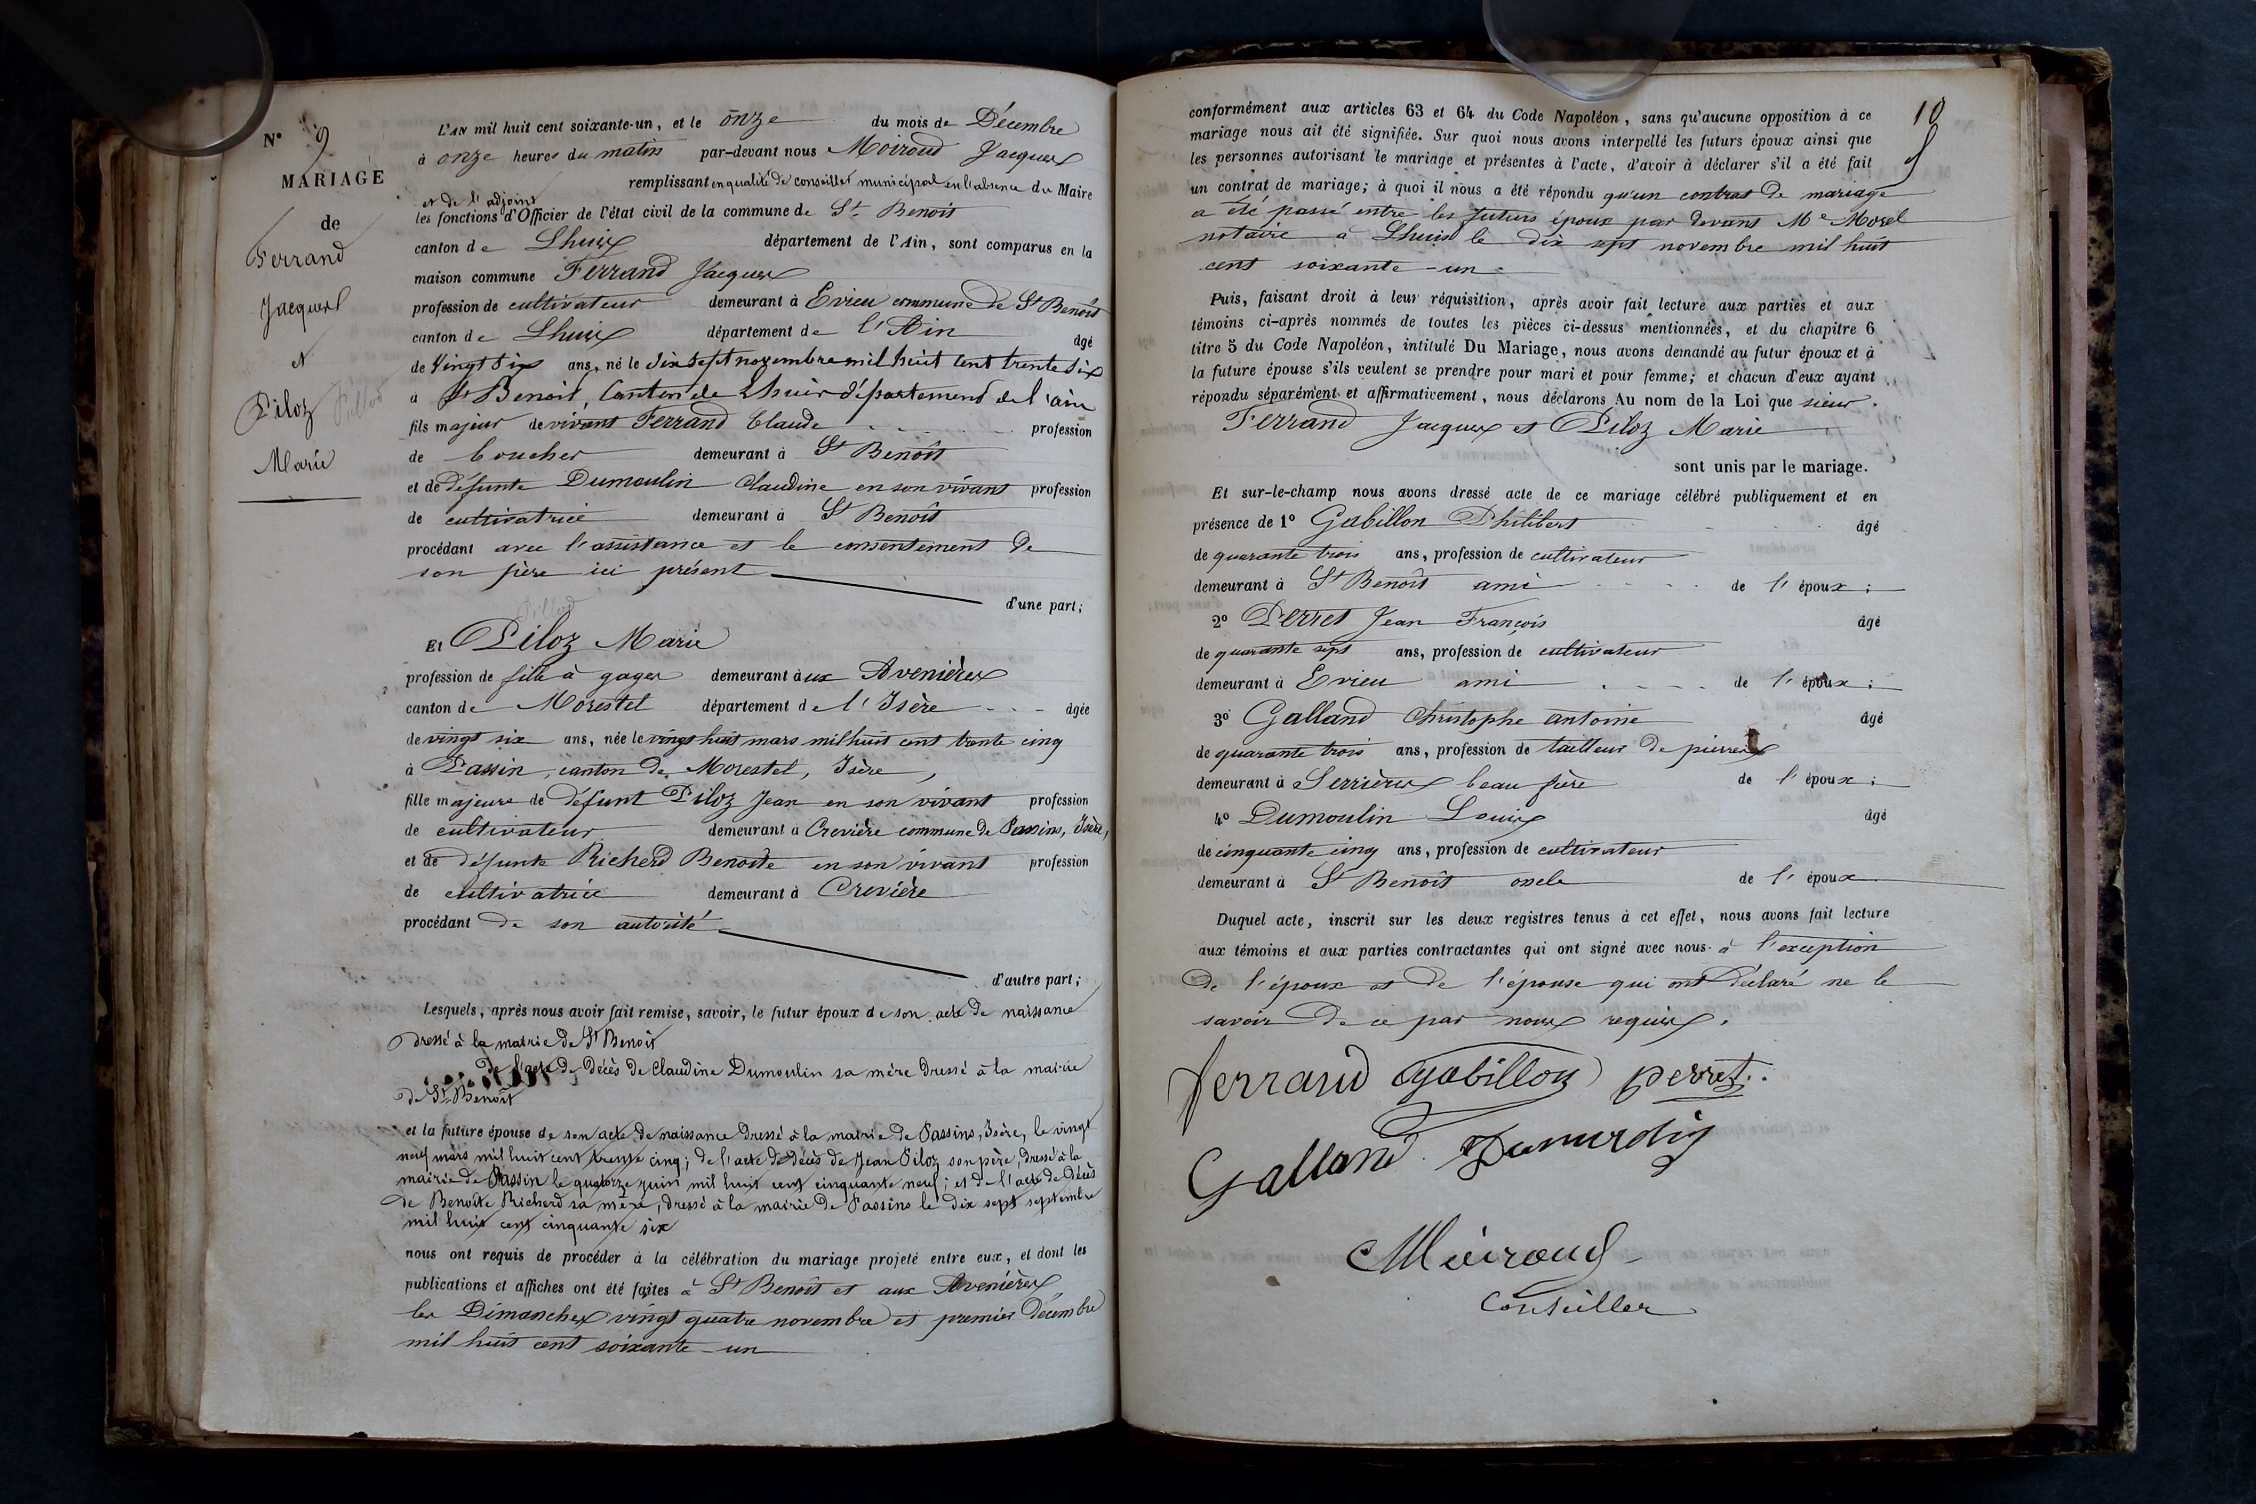 N° 9
MARIAGE
de
Ferrand
Jacques
et
Piloz Pillod
Marie
L'AN mil huit cent soixante-un, et le onze du mois de Décembre
à onze heures du matin par-devant nous Moiroud Jacques
remplissant en qualité de conseiller municipal en l'absence du Maire
et de l'adjoint
les fonctions d'Officier de l'état civil de la commune de St Benoit
canton de Lhuis département de l'Ain, sont comparus en la
maison commune Ferrand Jacques
profession de cultivateur demeurant à Evieu commune de St Benoît
canton de Lhuis département de l'Ain âgé
de Vingt six ans, né le dix sept novembre mil huit cent trente six
à St Benoit, Canton de Lhuis département de l'ain
fils majeur de vivant Ferrand Claude profession
de boucher demeurant à St Benoît
et de défunte Dumoulin Claudine en son vivant profession
de cultivatrice demeurant à St Benoît
procédant avec l'assistance et le consentement de
son père ici présent
d'une part;
Pillod
Et Piloz Marie
profession de fille à gages demeurant aux Avenières
canton de Morestel département de l'Isère âgée
de vingt six ans, née le vingt huit mars mil huit cent trente cinq
à Passin, canton de Morestel, Isère,
fille majeure de défunt Piloz Jean en son vivant profession
de cultivateur demeurant à Crevière commune de Passins, Isère,
et de défunte Richerd Benoite en son vivant profession
de cultivatrice demeurant à Crevière
procédant de son autorité
d'autre part;
Lesquels, après nous avoir fait remise, savoir, le futur époux de son acte de naissance
dressé à la mairie de St Benoit
de l'acte de décès de Claudine Dumoulin sa mère dressé à la mairie
de St Benoît
et la future épouse de son acte de naissance dressé à la mairie de Passins, Isère, le vingt
neuf mars mil huit cent trente cinq; de l'acte de décès de Jean Piloz son père, dressé à la
mairie de Passin le quatorze juin mil huit cent cinquante neuf; et de l'acte de décès
de Benoîte Richerd sa mère, dressé à la mairie de Passins le dix sept septembre
mil huit cent cinquante six
nous ont requis de procéder à la célébration du mariage projeté entre eux, et dont les
publications et affiches ont été faites à St Benoît et aux Avenières
les Dimanches vingt quatre novembre et premier décembre
mil huit cent soixante-un
10
conformément aux articles 63 et 64 du Code Napoléon, sans qu'aucune opposition à ce
mariage nous ait été signifiée. Sur quoi nous avons interpellé les futurs époux ainsi que
les personnes autorisant le mariage et présentes à l'acte, d'avoir à déclarer s'il a été fait
un contrat de mariage; à quoi il nous a été répondu qu'un contrat de mariage
a été passé entre les futurs époux par devant Me Morel
notaire à Lhuis le dix sept novembre mil huit
cent soixante-un
Puis, faisant droit à leur réquisition, après avoir fait lecture aux parties et aux
témoins ci-après nommés de toutes les pièces ci-dessus mentionnées, et du chapitre 6
titre 5 du Code Napoléon, intitulé Du Mariage, nous avons demandé au futur époux et à
la future épouse s'ils veulent se prendre pour mari et pour femme; et chacun d'eux ayant
répondu séparément et affirmativement, nous déclarons Au nom de la Loi que sieur
Ferrand Jacques et Piloz Marie
sont unis par le mariage.
Et sur-le-champ nous avons dressé acte de ce mariage célébré publiquement et en
présence de 1° Gabillon Philibert âgé
de quarante trois ans, profession de cultivateur
demeurant à St Benoît ami de l'époux;
2° Perret Jean François âgé
de quarante sept ans, profession de cultivateur
demeurant à Evieu ami de l'époux;
3° Galland Christophe antoine âgé
de quarante trois ans, profession de tailleur de pierres
demeurant à Serrières beau frère de l'époux;
4° Dumoulin Louis âgé
de cinquante cinq ans, profession de cultivateur
demeurant à St Benoît oncle de l'époux
Duquel acte, inscrit sur les deux registres tenus à cet effet, nous avons fait lecture
aux témoins et aux parties contractantes qui ont signé avec nous à l'exception
de l'époux et de l'épouse qui ont déclaré ne le
savoir de ce par nous requis.
ferrand Gabillon perret
Galland Dumoulin
Moiroud
Conseiller